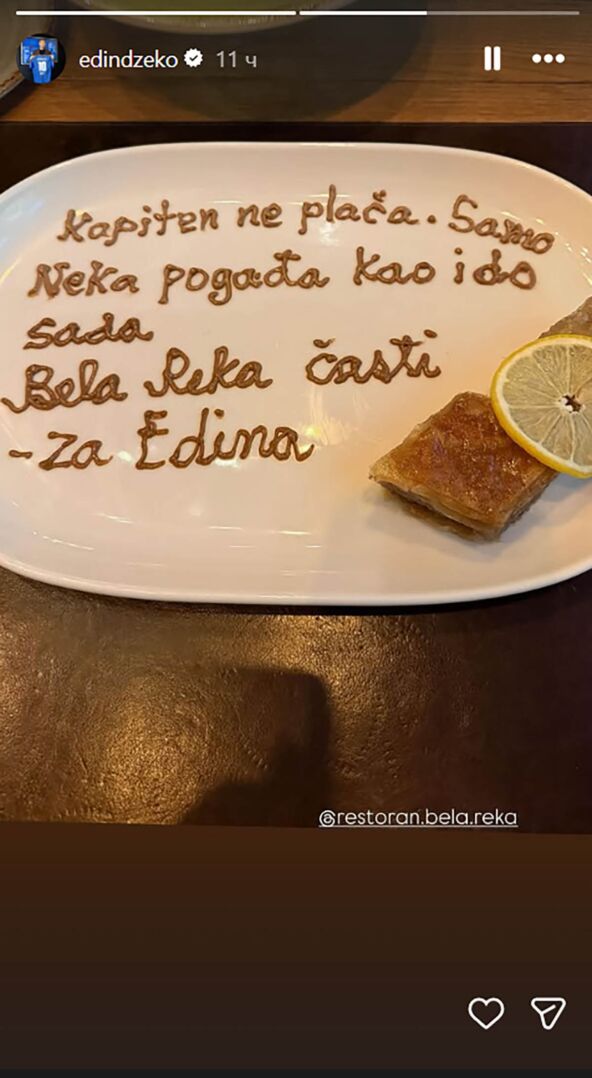 edindzeko 11 ч
Kapiten ne plaća. Samo
Neka pogađa kao i do
sada
Bela Reka časti
- Za Edina
@restoran.bela.reka